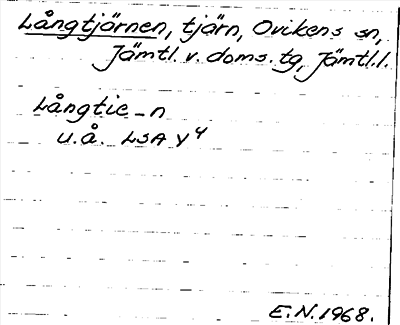 Långtjärnen, tjärn, Ovikens sn,
Jämtl. v. doms. tg, Jämtl. l.
Långtie_n
u.å. LSA Y4
E.N.1968.